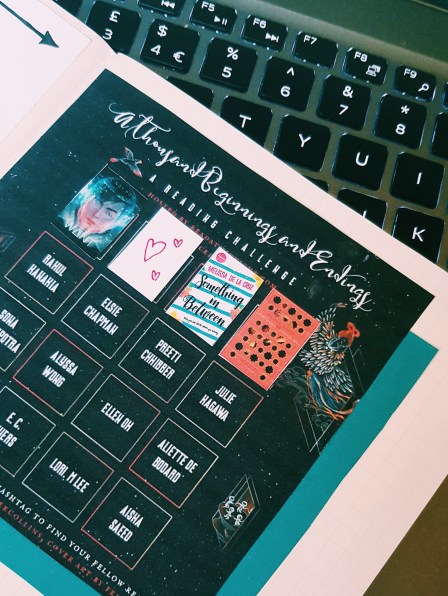 F3 F4 F5 F6 F7 F8 F9
£ 3
$ 4 €
% 5
^ 6
& 7
* 8
T Y U I
A Thousand Beginnings and Endings
A READING CHALLENGE
HOSTED BY
MELISSA DE LA CRUZ
Something
in
Between
RAHUL
KANAKIA
ELSIE
CHAPMAN
PREETI
CHHIBBER
JULIE
KAGAWA
SONA
POTRA
ALYSSA
WONG
ELLEN OH
ALIETTE DE
BODARD
E.C.
YERS
LORI. M LEE
AISHA
SAEED
HASHTAG TO FIND YOUR FELLOW RE
RCOLLINS, COVER ART BY FE